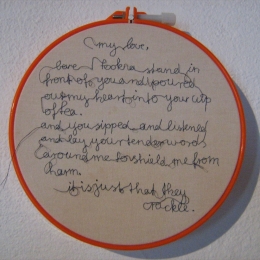 my love,
love I took a stand in
front of you and poured
out my heart into your cup
of tea.
and you sipped and listened
and lay your tender words
around me to shield me from
harm.
it is just that they
crackle.